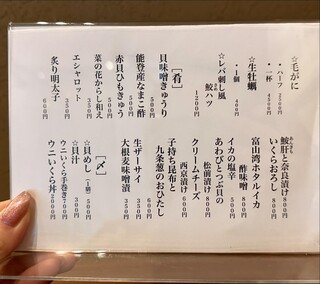 ☆毛がに
・ハーフ 2500円
・一杯 4500円
☆生牡蠣
・1個 400円
☆レバ刺し風
鮫ハツ 1200円
【肴】
貝味噌きゅうり 500円
能登産なまこ酢 500円
赤貝ひもきゅう 500円
菜の花からし和え 350円
エシャロット 350円
炙り明太子 660円
鮫肝と奈良漬け 800円
いくらおろし 800円
富山湾ホタルイカ
酢味噌 800円
イカの塩辛 500円
あわびとつぶ貝の
松前漬け 800円
クリームチーズ
西京漬け 600円
子持ち昆布と
九条葱のおひたし 600円
生ザーサイ 350円
大根麦味噌漬 350円
【〆】
☆貝めし(1個) 500円
☆貝汁 300円
ウニいくら手巻き 700円
ウニいくら丼 2000円